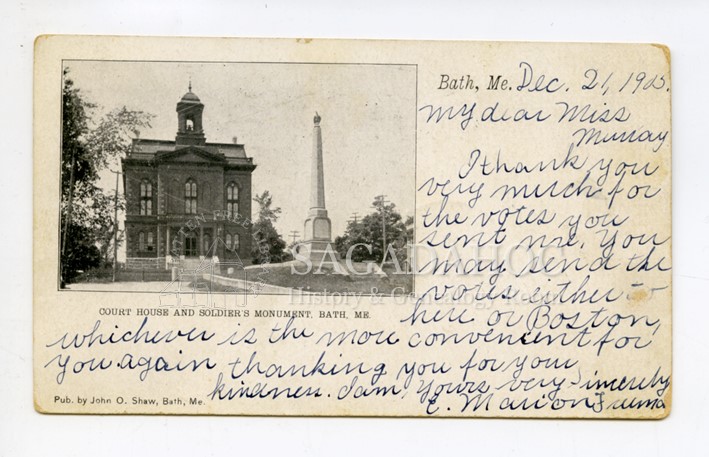 Bath, Me. Dec. 21, 1905.
My dear Miss
Murray
I thank you
very much for
the votes you
sent me. You
may send the
votes either to
here or Boston,
whichever is the more convenient for
you again thanking you for your
kindness. I am, Yours very Sincerely
E. Marion
COURT HOUSE AND SOLDIER'S MONUMENT, BATH, ME.
Pub. by John O. Shaw, Bath, Me.
SAGADAHOC
History & Genealogy Room